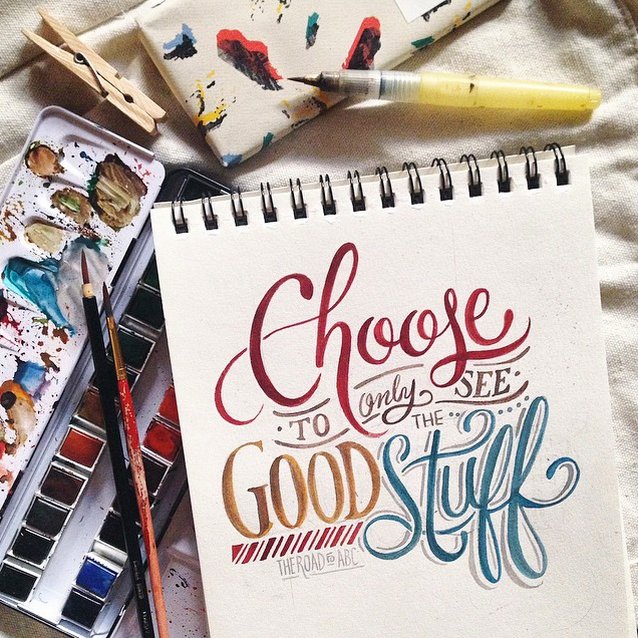 Choose
TO Only SEE
THE
GOOD Stuff
THE ROAD TO ABC